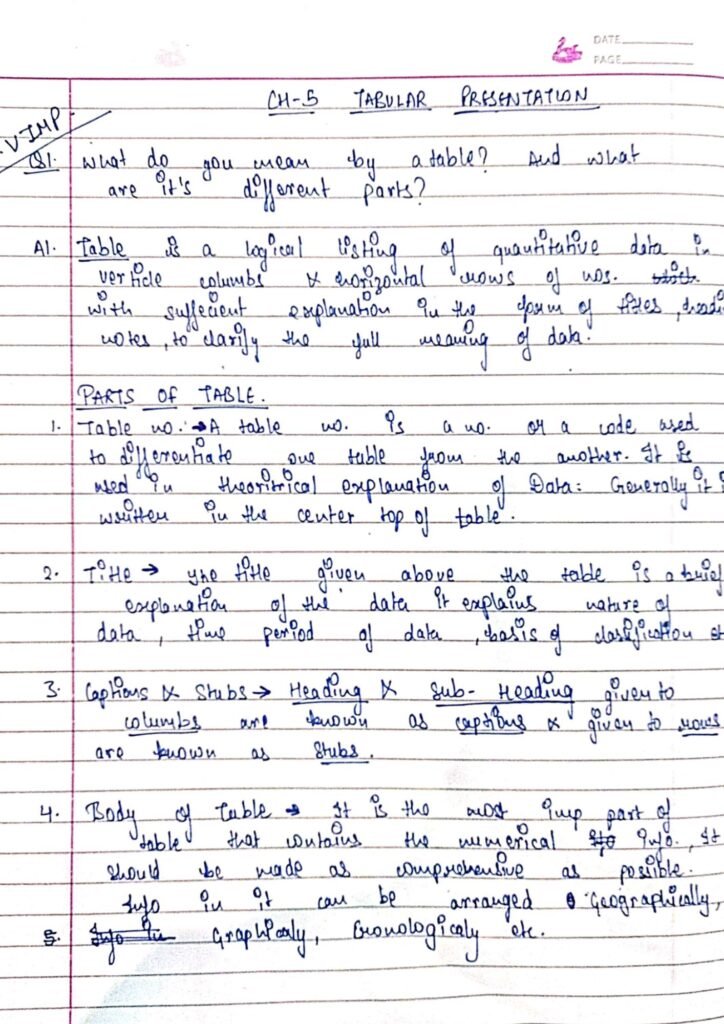 DATE
PAGE
CH-5 TABULAR PRESENTATION
V IMP
Q1. What do you mean by a table? And what
are it's different parts?
A1. Table is a logical listing of quantitative data in
verticle columbs & horizontal rows of nos.
with suffecient explanation in the form of titles, headi
notes, to clarify the full meaning of data.
PARTS OF TABLE.
1. Table no. → A table no. is a no. or a code used
to differentiate one table from the another. It is
used in theoritrical explanation of Data: Generally it i
written in the center top of table.
2. Title → The title given above the table is a brief
explanation of the data it explains nature of
data, time period of data, basis of classification et
3. Captions & Stubs → Heading & sub-Heading given to
columbs are known as captions & given to rows
are known as Stubs.
4. Body of Table → It is the most imp part of
table that contains the numerical info. It
should be made as comprehensive as possible.
Info in it can be arranged Geographically,
5. Info in Graphicaly, Cronologicaly etc.